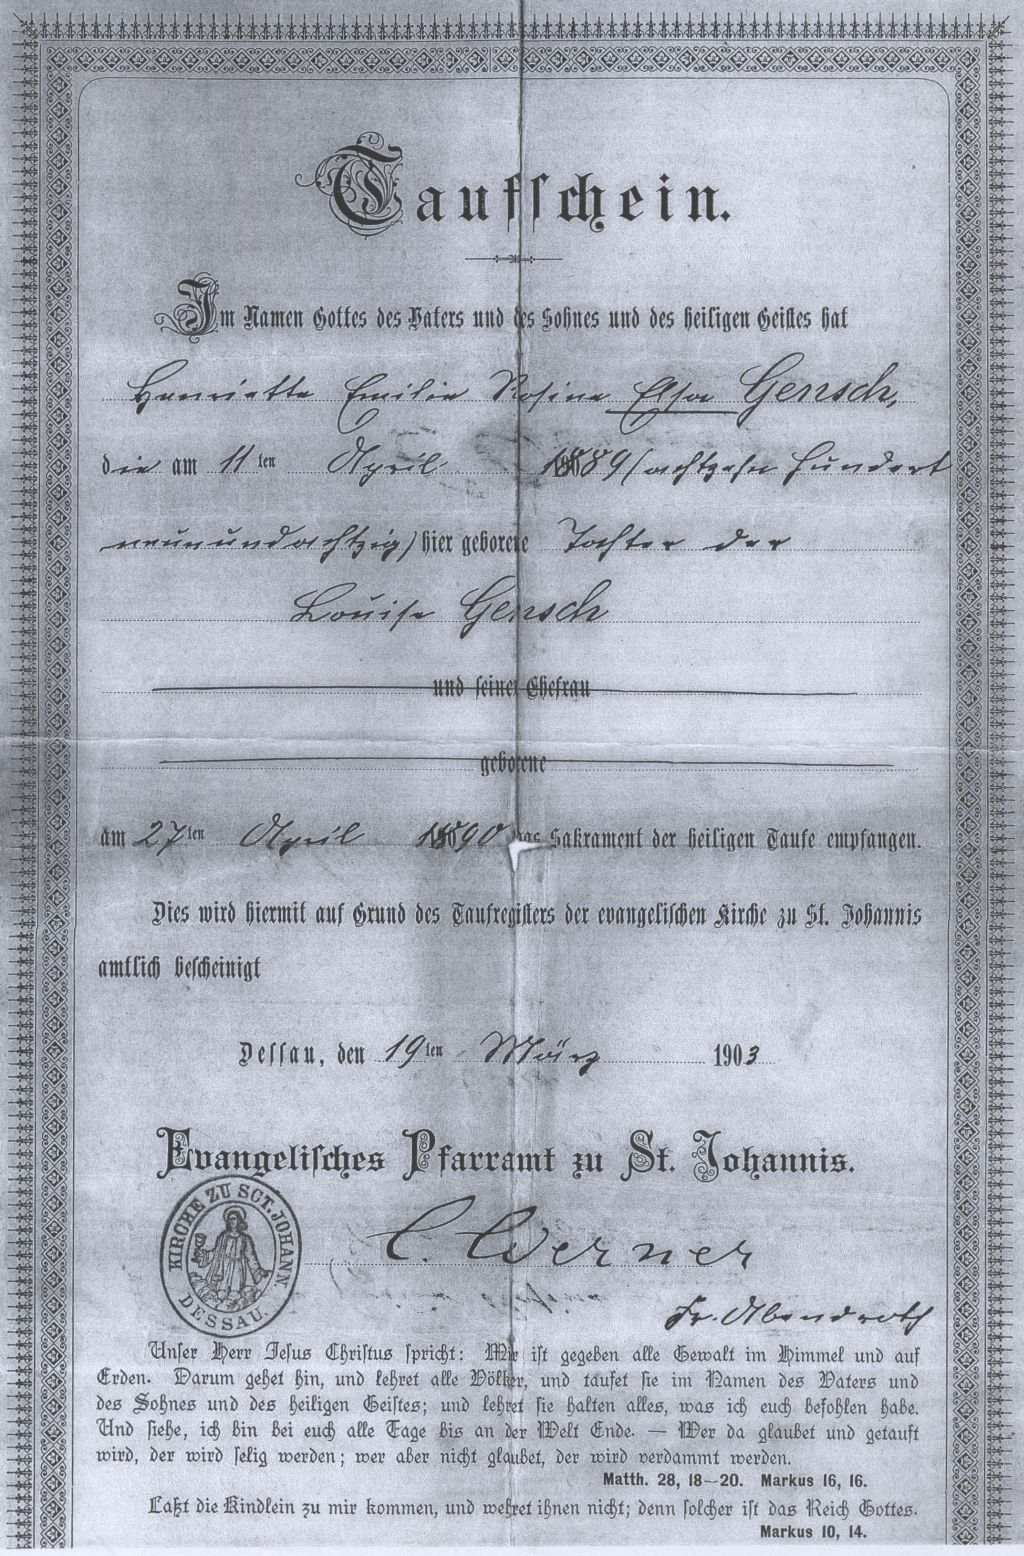 Taufschein.
Im Namen Gottes des Vaters und des Sohnes und des heiligen Geistes hat
Henriette Emilie Rosine Elsa Gensch,
die am 11ten April 1889 (achtzehn hundert
neunundachtzig) hier geborene Tochter der
Louise Gensch
und seiner Ehefrau
geborene
am 27ten April 1890 das Sakrament der heiligen Taufe empfangen.
Dies wird hiermit auf Grund des Taufregisters der evangelischen Kirche zu St. Johannis
amtlich bescheinigt
Dessau, den 19ten März 1903
Evangelisches Pfarramt zu St. Johannis.
KIRCHE ZU SCT. JOHANN
DESSAU.
C. Werner
Fr. Abendroth
Unser Herr Jesus Christus spricht: Mir ist gegeben alle Gewalt im Himmel und auf
Erden. Darum gehet hin, und lehret alle Völker, und taufet sie im Namen des Vaters und
des Sohnes und des heiligen Geistes; und lehret sie halten alles, was ich euch befohlen habe.
Und siehe, ich bin bei euch alle Tage bis an der Welt Ende. — Wer da glaubet und getauft
wird, der wird selig werden; wer aber nicht glaubet, der wird verdammt werden.
Matth. 28, 18—20. Markus 16, 16.
Laßt die Kindlein zu mir kommen, und wehret ihnen nicht; denn solcher ist das Reich Gottes.
Markus 10, 14.